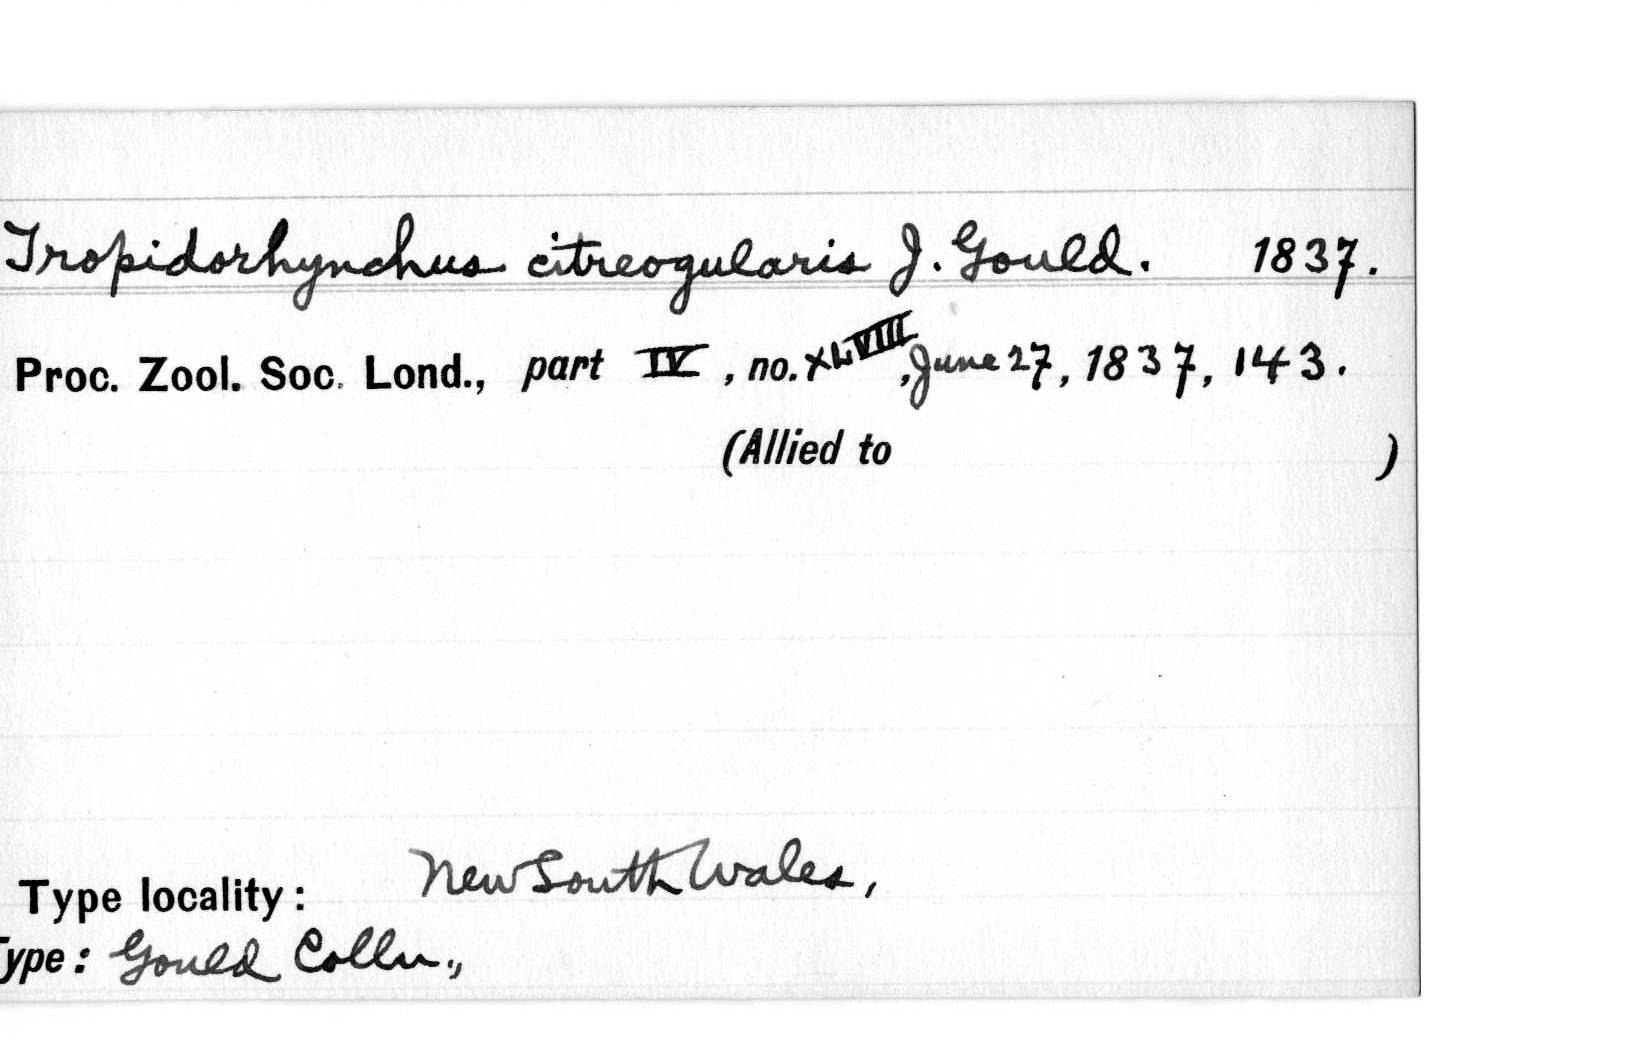 Tropidorhynchus citreogularis J. Gould. 1837.
Proc. Zool. Soc. Lond., part IV, no. XLVIII, June 27, 1837, 143.
(Allied to )
Type locality: New South Wales,
Type: Gould Colln.,